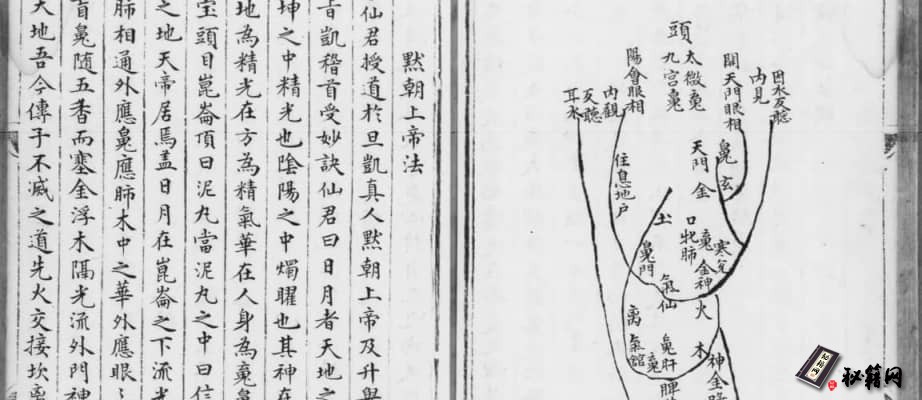 頭
太微䰟
九宫䰟
陽會眼相
開天門眼相
内見
内觀
反聽
耳水
住息地户
天門金
䰟玄
土
口
肺
䰟門
金神
氣仙
火
離
氣舘
木
䰟肝
脾
默朝上帝法
仙君授道於旦凱真人默朝上帝及升
凱稽首受妙訣仙君曰日月者天地之
坤之中精光也陰陽之中燭曜也其神在
地為精光在方為精氣華在人身為䰟
頭目崑崙頂曰泥丸當泥丸之中曰
之地天帝居焉盖日月在崑崙之下流
肺相通外應鼻應肺木中之華外應眼
盲鼻随五香而塞金浮木隔光流外門神
天地吾今傳子不滅之道先火交接坎离
秘籍网